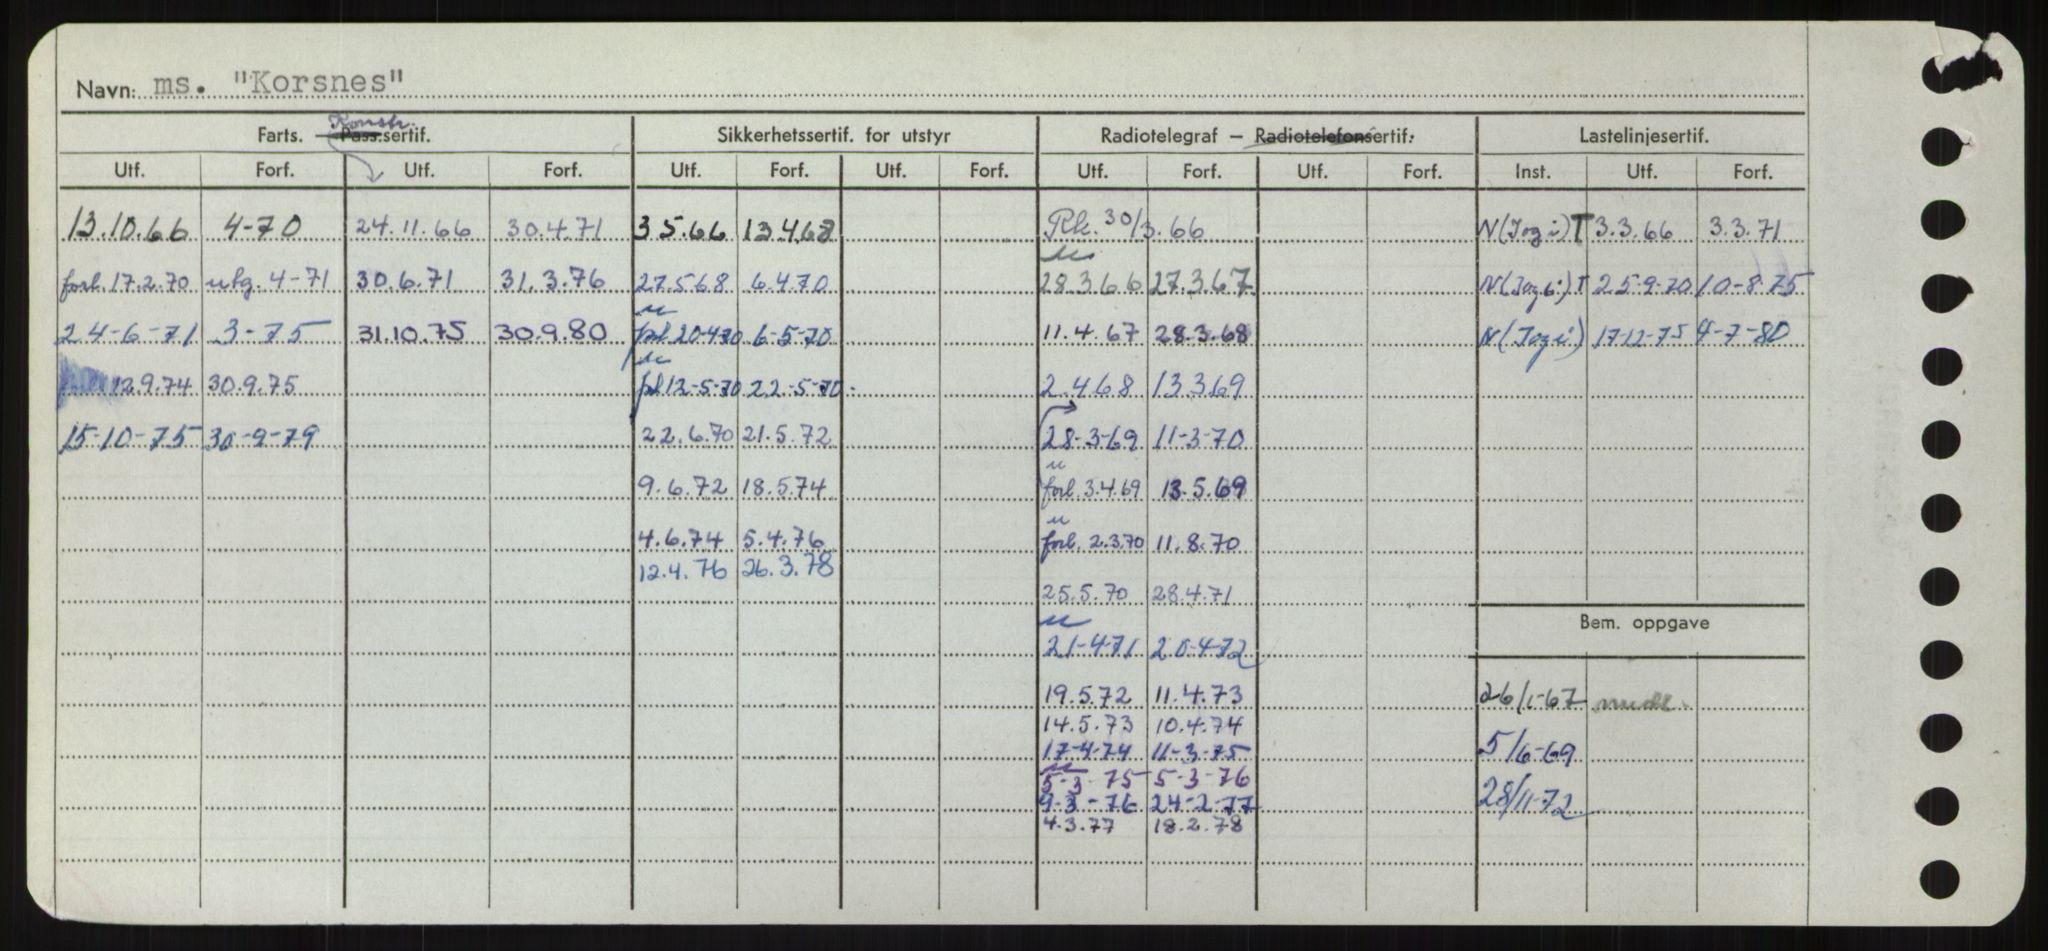 Navn: ms. "Korsnes"
Farts. — Konstr. Pass.sertif. Sikkerhetssertif. for utstyr Radiotelegraf — Radiotelefonsertif. Lastelinjesertif.
Utf. Forf. Utf. Forf. Utf. Forf. Utf. Forf. Utf. Forf. Utf. Forf. Inst. Utf. Forf.
13.10.66 4-70 24.11.66 30.4.71 3 5.66 13 4.68 Rk. 30/3.66 N(I og i) T 3.3.66 3.3.71
forl. 17.2.70 utg. 4-71 30.6.71 31.3.76 27.5 68 6.4.70 28.3.66 27.3.67 N(I og i) T 25-9-70 10-8-75
24-6-71 3-75 31.10.75 30.9.80 20-4-70 6-5-70 11.4.67 28.3.68 N(I og i) 17-12-75 4-7-80
12.9.74 30.9.75 12-5-70 22-5-70 2.4.68 13.3.69
15-10-75 30-9-79 22.6.70 21.5.72 28-3-69 11-3-70
9.6.72 18.5.74 forl. 3.4.69 13.5.69
4.6.74 5.4.76 forl. 2.3.70 11.8.70
12.4.76 26.3.78
25.5.70 28.4.71
Bem. oppgave
21-4-71 20-4-72
19.5.72 11.4.73 26/1-67
14.5.73 10.4.74
17-4-74 11-3-75 5/6-69
5-3-75 5-3-76
9-3-76 24-2-77 28/11-72
4.3.77 18.2.78